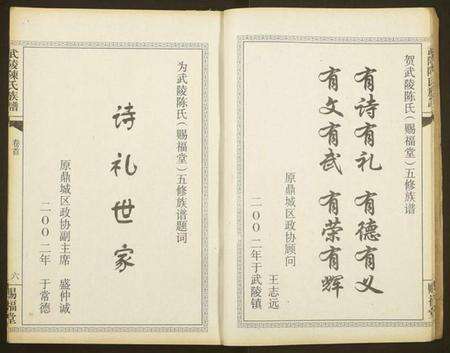 贺武陵陈氏（赐福堂）五修族谱
有诗有礼 有德有义
有文有武 有荣有辉
原鼎城区政协顾问 王志远
二00二年于武陵镇
赐福堂
为武陵陈氏（赐福堂）五修族谱题词
诗礼世家
原鼎城区政协副主席 盛仲诚
二00二年 于常德
武陵陳氏族譜
卷首
六
赐福堂